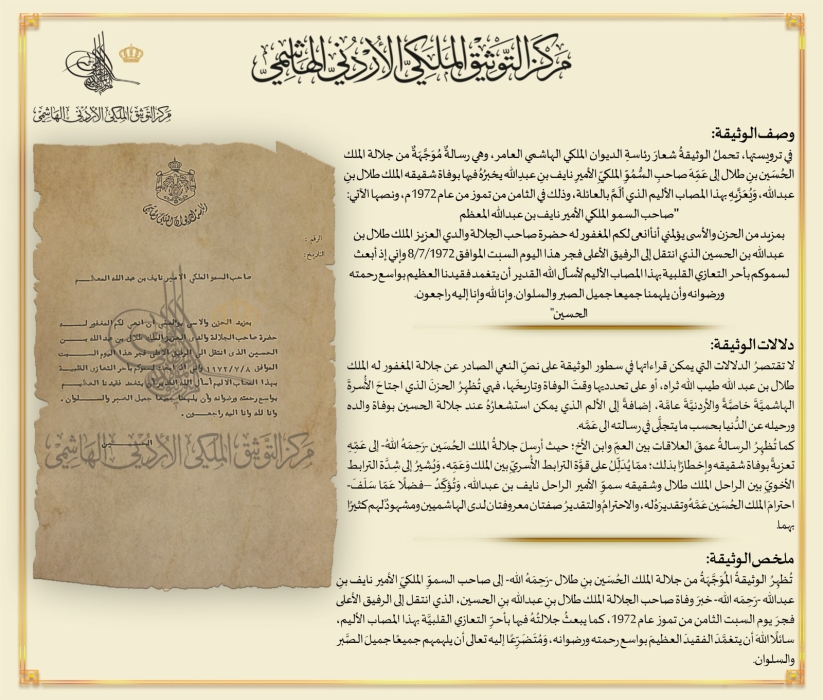 مركز التوثيق الملكي الأردني الهاشمي
مركز التوثيق الملكي الأردني الهاشمي
وصف الوثيقة:
في ترويستها، تحملُ الوثيقةُ شعارَ رئاسةِ الديوان الملكي الهاشمي العامر، وهي رسالةٌ مُوَجَّهَةٌ من جلالة الملك
الحُسَين بن طلال إلى عَمِّهِ صاحبِ السُّمُوّ الملكيّ الأميرِ نايف بن عبدالله يخبرُهُ فيها بوفاة شقيقه الملك طلال بن
عبدالله، وَيُعَزِّيهِ بهذا المصاب الأليم الذي أَلَمَّ بالعائلة، وذلك في الثامن من تموز من عام 1972م، ونصها الآتي:
"صاحب السمو الملكي الأمير نايف بن عبدالله المعظم
بمزيد من الحزن والأسى يؤلمني أن أنعى لكم المغفور له حضرة صاحب الجلالة والدي العزيز الملك طلال بن
عبدالله بن الحسين الذي انتقل إلى الرفيق الأعلى فجر هذا اليوم السبت الموافق 8/7/1972 وإني إذ أبعث
لسموكم بأحر التعازي القلبية بهذا المصاب الأليم لأسأل الله القدير أن يتغمد فقيدنا العظيم بواسع رحمته
ورضوانه وأن يلهمنا جميعا جميل الصبر والسلوان. وإنا لله وإنا إليه راجعون.
الحسين"
دلالات الوثيقة:
لا تقتصرُ الدلالات التي يمكن قراءاتها في سطور الوثيقة على نصّ النعي الصادر عن جلالة المغفور له الملك
طلال بن عبد الله طيب الله ثراه، أو على تحددها وقتَ الوفاة وتاريخَها، فهي تُظهِرُ الحزنَ الذي اجتاحَ الأُسرةَ
الهاشميَّةَ خاصَّةً والأردنيَّةَ عامَّة، إضافةً إلى الألم الذي يمكن استشعارُهُ عند جلالة الحسين بوفاة والده
ورحيله عن الدُّنيا بحسب ما يتجلَّى في رسالته الى عَمَّه.
كما تُظهِرُ الرسالةُ عمقَ العلاقات بين العمّ وابن الأخ؛ حيث أرسلَ جلالةُ الملك الحُسَين -رَحِمَهُ اللهُ- إلى عَمِّهِ
تعزيةً بوفاة شقيقه وإخطارًا بذلك؛ ممّا يُدَلِّلُ على قوَّة الترابط الأُسريّ بين الملك وَعَمِّه، وَيُشيرُ إلى شِدَّة الترابط
الأخويّ بين الراحل الملك طلال وشقيقه سموّ الأمير الراحل نايف بن عبدالله، وَتُؤَكِّدُ –فضلًا عَمّا سَلَفَ-
احترامَ الملك الحُسَين عَمَّهُ وتقديرَهُ له، والاحترامُ والتقديرُ صفتان معروفتان لدى الهاشميين ومشهودٌ لهم كثيرًا
بهما.
ملخص الوثيقة:
تُظهِرُ الوثيقةُ المُوَجَّهَةُ من جلالة الملك الحُسَين بن طلال -رَحِمَهُ الله- إلى صاحب السموّ الملكيّ الأمير نايف بن
عبدالله -رَحِمَه الله- خبرَ وفاة صاحب الجلالة الملك طلال بن عبدالله بن الحسين، الذي انتقل إلى الرفيق الأعلى
فجرَ يوم السبت الثامن من تموز عام 1972، كما يبعثُ جلالتُهُ فيها بأحرّ التعازي القلبيَّة بهذا المصاب الأليم،
سائلًا اللهَ أن يتغمَّدَ الفقيدَ العظيمَ بواسع رحمته ورضوانه، وَمُتَضَرِّعًا إليه تعالى أن يلهمهم جميعًا جميلَ الصَّبر
والسلوان.
الرقم :
التاريخ:
صاحب السمو الملكي الامير نايف بن عبد الله المعظم
بمزيد الحزن والاسى يؤلمني ان انعى لكم المغفور له
حضرة صاحب الجلالة والدي العزيز الملك طلال بن عبد الله بن
الحسين الذي انتقل الى الرفيق الاعلى فجر هذا اليوم السبت
الموافق ١٩٧٢/٧/٨ واني اذ ابعث لسموكم بأحر التعازي القلبية
بهذا المصاب الاليم لأسأل الله القدير ان يتغمد فقيدنا العظيم
بواسع رحمته ورضوانه وأن يلهمنا جميعا جميل الصبر والسلوان .
وانا لله وانا اليه راجعون .
الحسين
مركز التوثيق الملكي الأردني الهاشمي